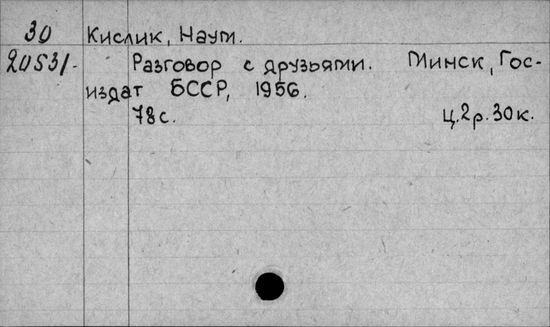 30 Кислик, Наум.
20531- Разговор с друзьями. Минск, Гос-
издат БССР, 1956.
78с. Ц.2р.30к.